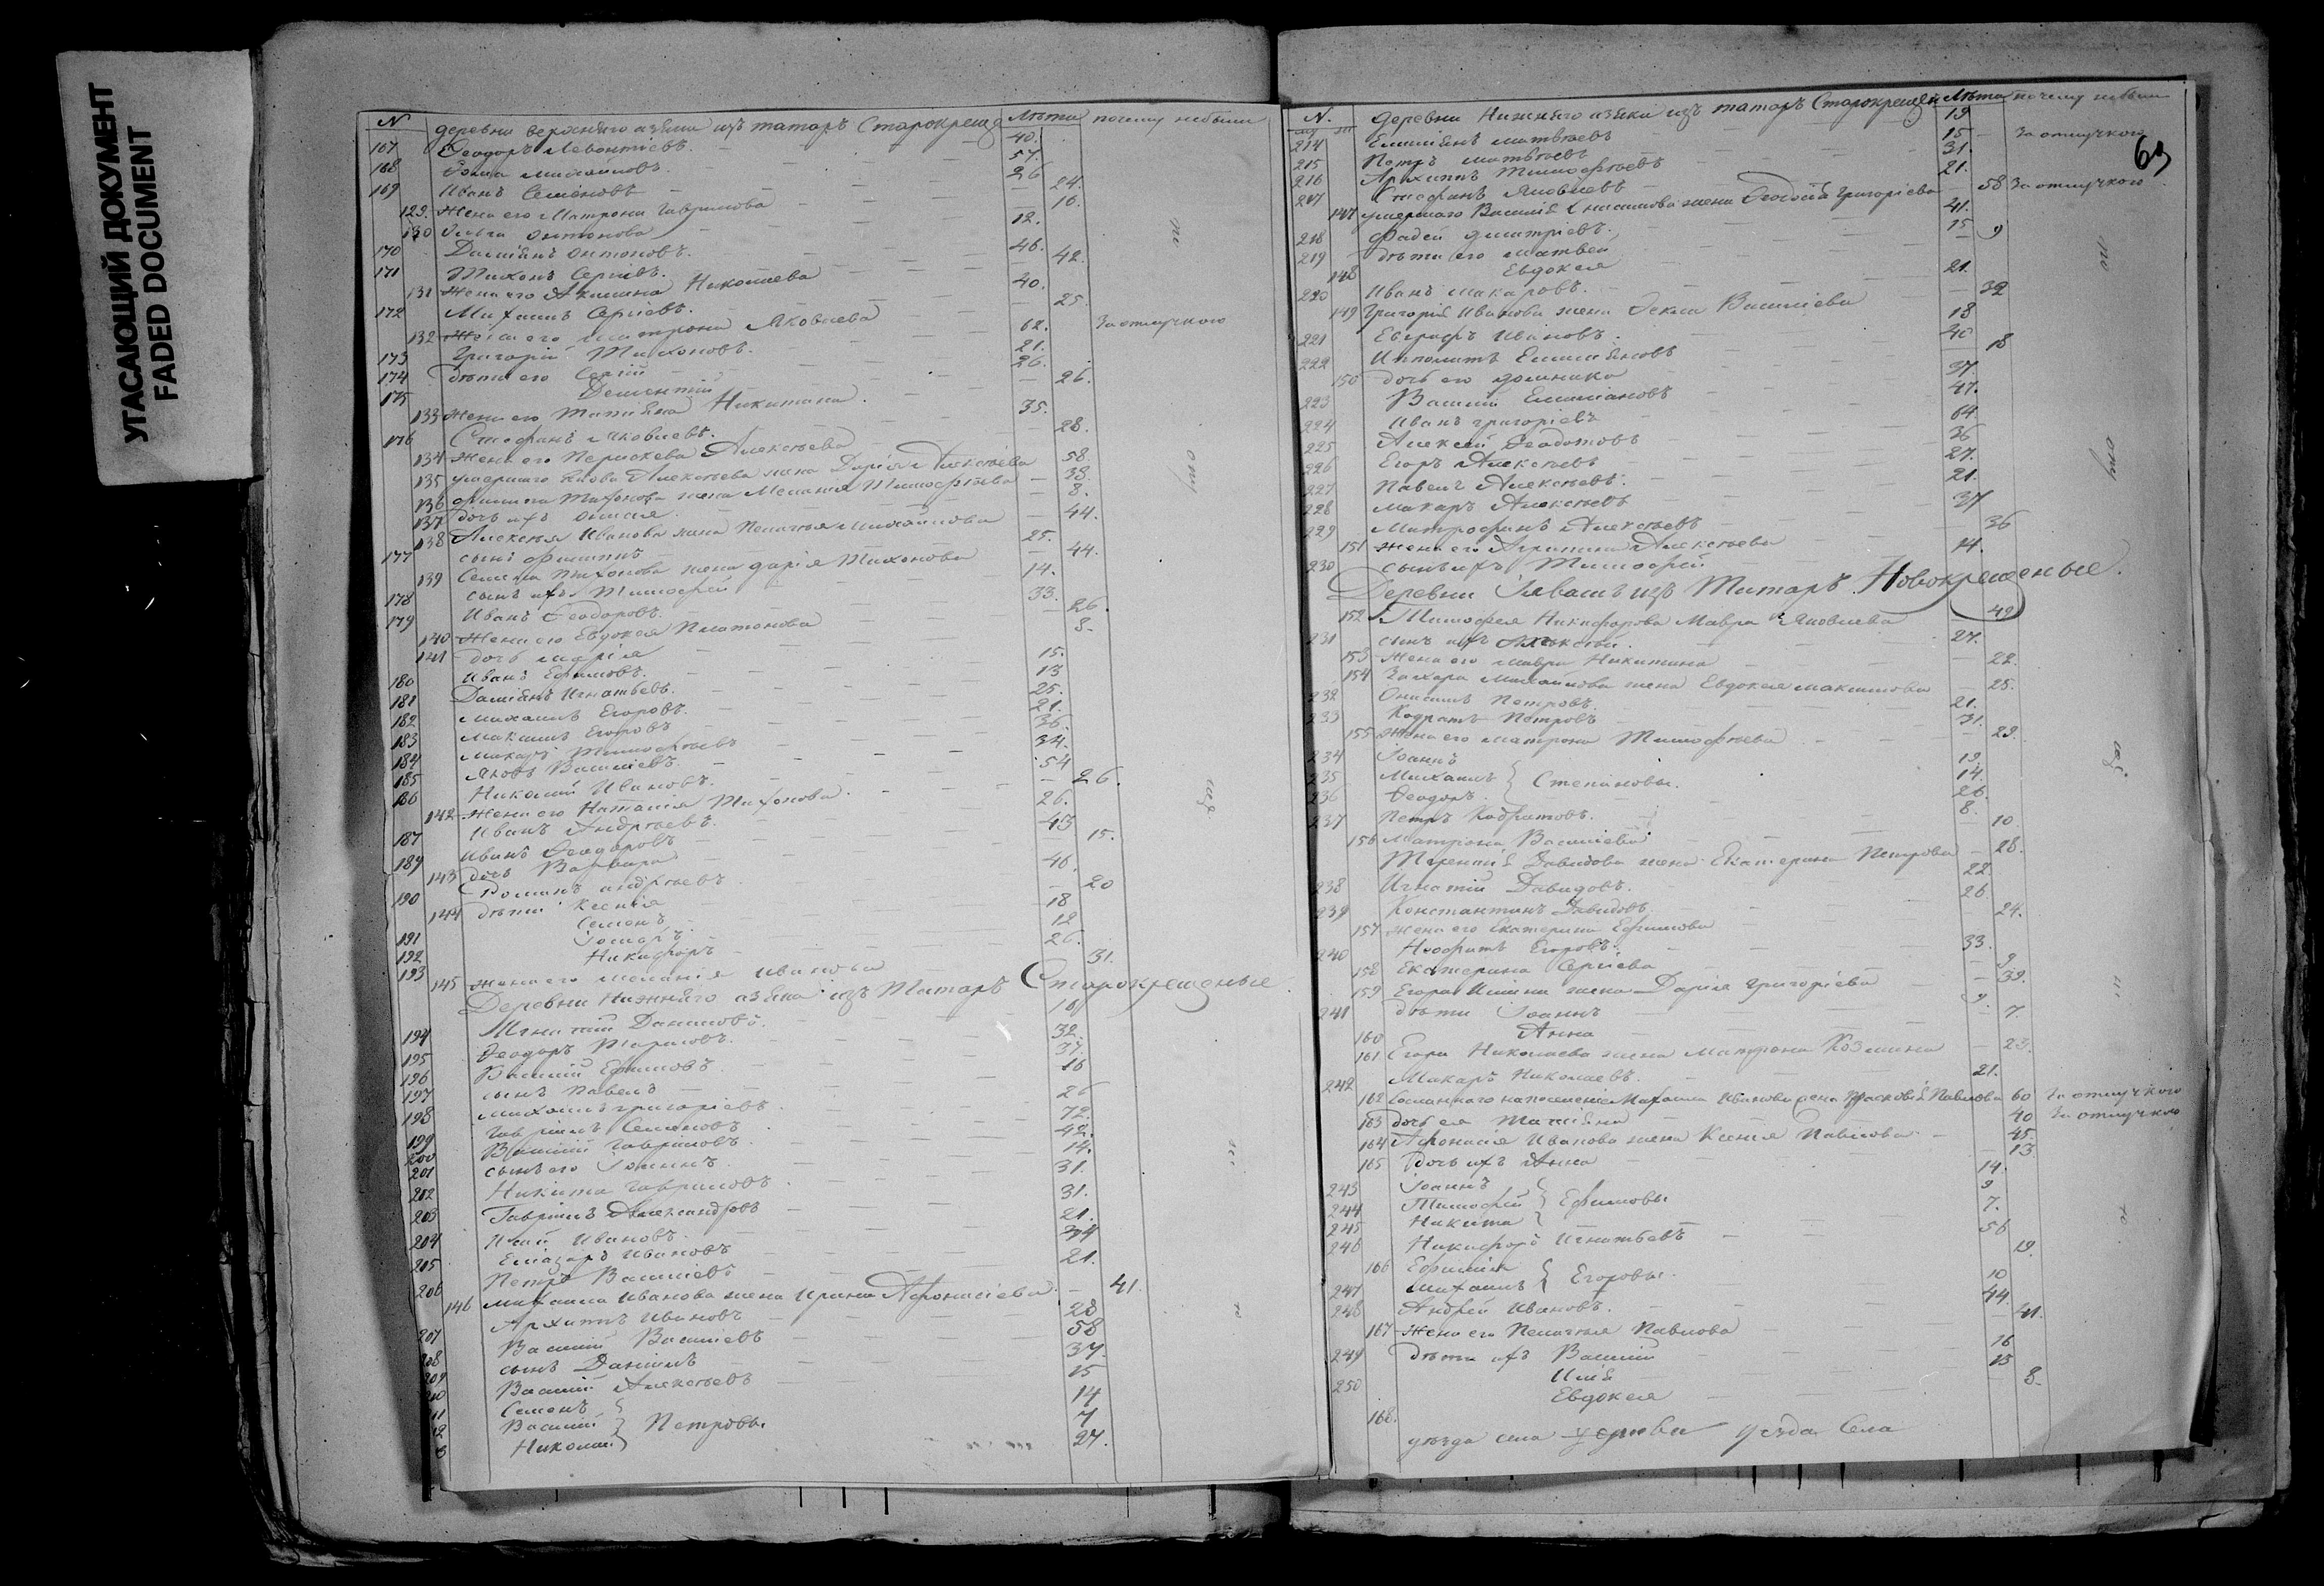 УГАСАЮЩИЙ ДОКУМЕНТ
FADED DOCUMENT
N деревни верхняго азяка изъ татаръ Старокрещ Лѣта почему небыли
167 Ѳеодоръ Левонтіевъ. 40.
168 Ѳома Михайловъ. 57.
169 Иванъ Семеновъ 26
129. Жена его Матрона Гаврилова 24.
130 Ольга Антонова 16.
170 Даміянъ Антоновъ. 12.
171 Тихонъ Сергіевъ. 46.
131 Жена его Акилина Николаева 42.
172 Михаилъ Сергіевъ. 40.
132 Жена его Матрона Яковлева 25
173 Григорій Тихоновъ. 62. За отлучкою
174 дѣти его Сергій 21.
175 Дементій 26.
133 Жена его Татіяна Никитина. 26.
176 Стефанъ Яковлевъ. 35.
134 Жена его Параскева Алексѣева 28.
135 умершаго Алексѣева жена Дарія Алексѣева 58.
136 Филипа Тихонова жена Меланія Тимофѣева 38.
137 дочь ихъ 8.
138 Алексѣя Иванова жена Пелагея Михайлова 44.
177 сынъ Филиппъ 25.
139 Семена Тихонова жена Дарія Тихонова 44.
178 сынъ ихъ Тимофей 14.
179 Иванъ Ѳеодоровъ. 33.
140 Жена его Евдокея Платонова 26.
141 дочь Марія 8.
180 Иванъ Ефимовъ. 15.
181 Даміянъ Игнатьевъ. 13
182 Михаилъ Егоровъ. 25.
183 Максимъ Егоровъ 21.
184 Макаръ Тимофѣевъ 36.
185 Яковъ Василіевъ. 34.
186 Николай Ивановъ. 54
142 Жена его Наталія Тихонова. 26.
187 Иванъ Андрѣевъ. 26.
189 Иванъ Ѳеодоровъ 43
143 дочь Варвара 15.
190 Романъ Андрѣевъ 40.
144 дѣти Ксенія 20
191 Семенъ. 18
192 12
193 Никифоръ 26.
145 Жена его Меланія Иванова 31.
Деревни Нижняго азяка изъ Татаръ Старокрещеные
194 Игнатій Даниловъ. 16
195 Ѳеодоръ Тарасовъ. 32.
196 Василій Ефимовъ 37.
197 сынъ Павелъ 16
198 Михаилъ Григоріевъ. 26
199 Гаврилъ Семеновъ 72.
200 Василій Гавриловъ 42.
201 сынъ его Іоаннъ. 14.
202 Никита Гавриловъ 31.
203 Гаврилъ Александровъ 31.
204 Илій Ивановъ. 21.
205 Елизаръ Ивановъ 34
206 Петръ Василіевъ 21.
146 Михаила Иванова жена Ирина Афонасіева 41.
207 Архипъ Ивановъ 28
208 Василій Василіевъ 58
209 сынъ Даніилъ 37
210 Василій Алексѣевъ 15
11 Семенъ 14
12 Василій } Петровы 7
3 Николай 27.
N. деревни Нижняго азяка изъ татаръ Старокрещен Лѣта почему небыли
63
214 Емиліянъ Матвѣевъ 19
215 Петръ Матвѣевъ 15 За отлучкою
216 Архипъ Тимофѣевъ 31.
217 Стефанъ Яковлевъ 21.
147 умершаго Василія Анисимова жена Ѳеодосія Григоріева 58 За отлучкою
218 Фадей Дмитріевъ. 41.
219 дѣти его Матвей 15
148 Евдокея 9
220 Иванъ Макаровъ. 21.
149 Григорія Иванова жена Ѳекла Василіева 32
221 Евграфъ Ивановъ. 18
222 Ипполитъ Емиліяновъ 40
150 дочь его Домника 18
223 Василій Емиліановъ 37.
224 Иванъ Григоріевъ 47.
225 Алексей Ѳеодотовъ 64
226 Егоръ Алексѣевъ 36
227 Павелъ Алексѣевъ. 27.
228 Макаръ Алексѣевъ 21.
229 Митрофанъ Алексѣевъ 37
151 Жена его Агрипина Алексѣева 36
230 сынъ ихъ Тимофей 14.
Деревни изъ Татаръ Новокрещеные.
152 Тимофея Никифорова Мавра Яковлева 42
231 сынъ ихъ Алексѣй. 27.
153 Жена его Мавра Никитина 22.
154 Захара Михайлова жена Евдокея Максимова 25.
232 Онисимъ Петровъ. 21.
233 Кодратъ Петровъ 31.
155 Жена его Матрона Тимофѣева 29.
234 Іоаннъ 19.
235 Михаилъ } Степановы. 14.
236 Ѳеодоръ. 26.
237 Петръ Кодратовъ. 8.
156 Матрона Василіева 10.
Терентія Давидова жена Екатерина Петрова 28.
238 Игнатій Давидовъ. 22.
239 Константинъ Давидовъ. 26
157 Жена его Екатерина Ефимова 24.
240 Неофитъ Егоровъ. 33.
158 Екатерина Сергіева 9
159 Егора Ильина жена Дарія Григоріева 39.
241 дѣти Іоаннъ 9.
160 Анна 7.
161 Егора Николаева жена Матрона Козмина 23.
242 Макаръ Николаевъ. 21.
162 Сосланнаго на поселеніе Михаила Иванова жена Прасковія Павлова 60 За отлучкою
163 дочь ея Татіяна 40 За отлучкою
164 Афонасія Иванова жена Ксенія Павлова 45.
165 дочь ихъ Анна 13
243 Іоаннъ 14.
244 Тимофей } Ефимовы 9
245 Никита 7.
246 Никифоръ Игнатьевъ 56
166 Ефимія } Егоровы. 19.
247 Михаилъ 10
248 Андрей Ивановъ. 44.
167 Жена его Пелагея Павлова 41.
249 дѣти ихъ Василій 16
250 Илія 15
168. Евдокея 8.
уѣзда села церкви уезда Села